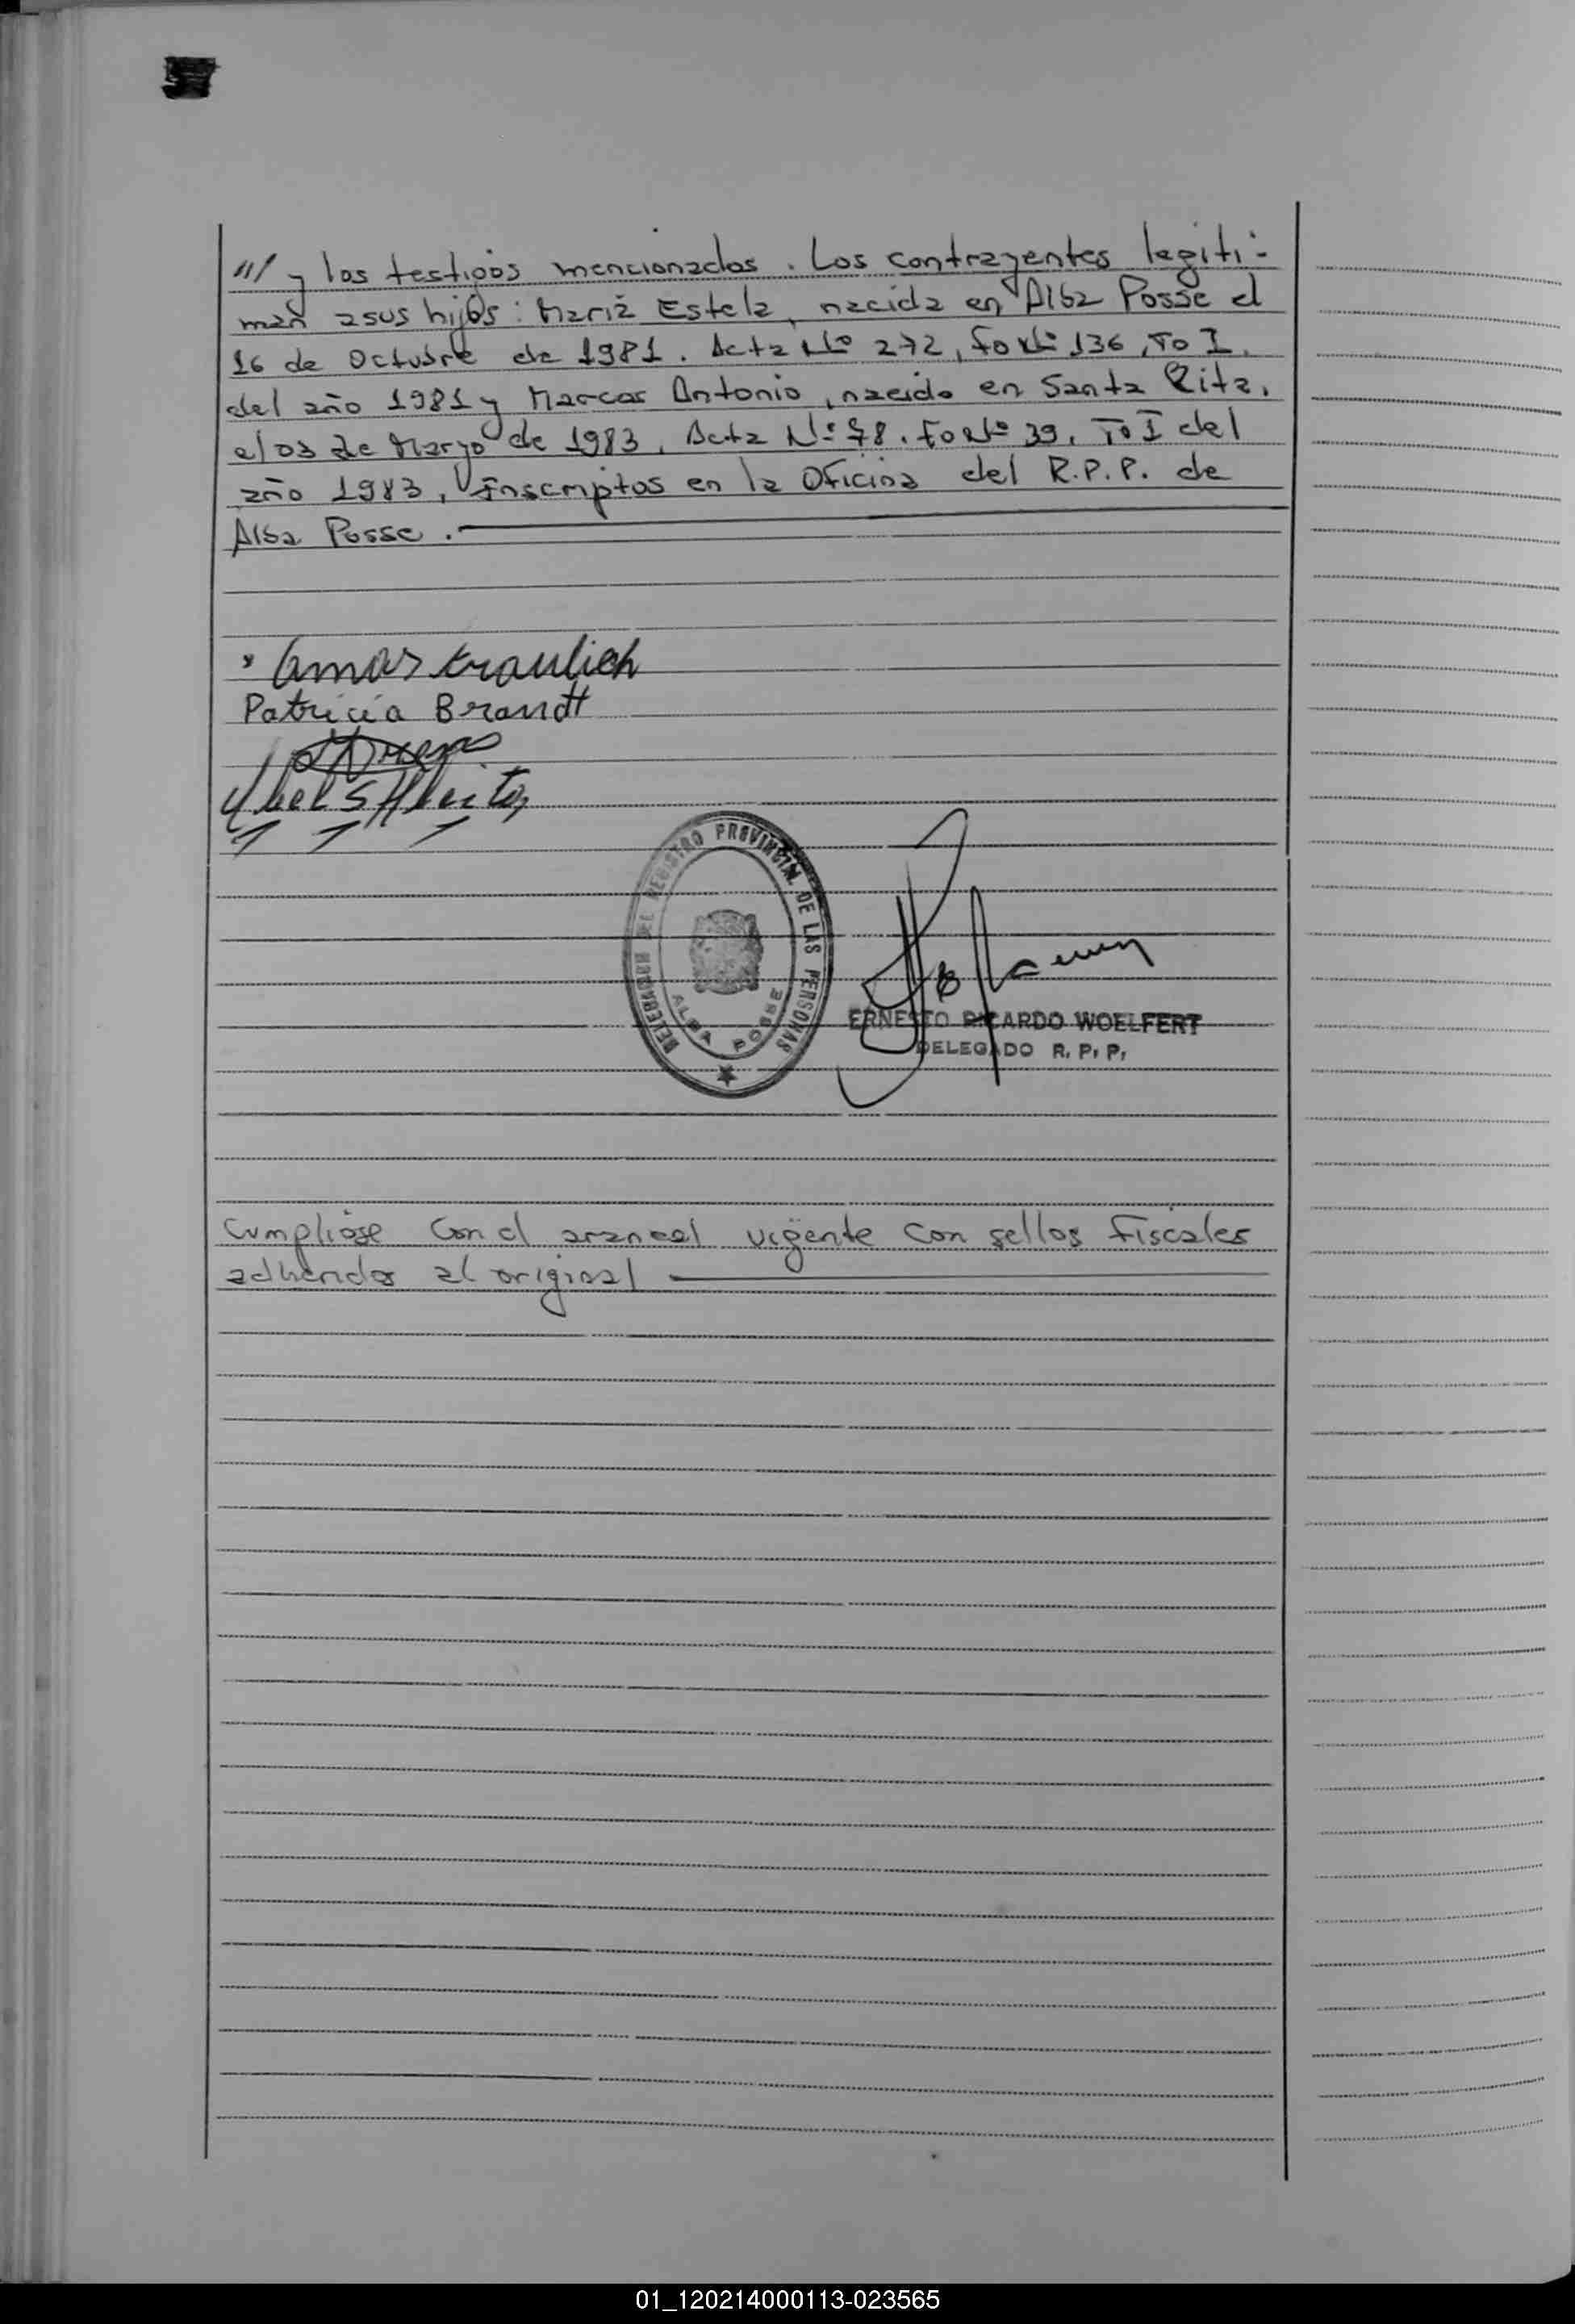 /// y los testigos mencionados. Los contrayentes legiti-
man a sus hijos: María Estela, nacida en Alba Posse el
16 de Octubre de 1981. Acta Nº 272, Fo Nº 136, To I.
del año 1981 y Marcos Antonio, nacido en Santa Rita,
el 03 de Marzo de 1983, Acta Nº 78. Fo Nº 39. To I del
año 1983, Inscriptos en la Oficina del R.P.P. de
Alba Posse.
Patricia Brandt
DELEGACION DEL REGISTRO PROVINCIAL DE LAS PERSONAS
ALBA POSSE
ERNESTO RICARDO WOELFERT
DELEGADO R. P. P.
Cumpliose con el arancel vigente con sellos fiscales
adheridos al original
01_120214000113-023565